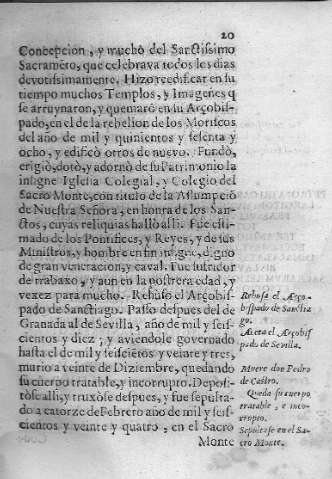 20
Concepcion, y muchò del Sanctissimo
Sacramēto, que celebrava todos los dias
devotissimamente. Hizo reedificar en su
tiempo muchos Templos, y Imagenes q
se arruynaron, y quemarō en su Arçobis-
pado, en el de la rebelion de los Moriscos
del año de mil y quinientos y sesenta y
ocho, y edificò otros de nuevo. Fundò,
erigiò, dotò, y adornò de su Patrimonio la
insigne Iglesia Colegial, y Colegio del
Sacro Monte, con titulo de la Assumpciō
de Nuestra Señora, en honra de los San-
ctos, cuyas reliquias hallò alli. Fue esti-
mado de los Pontifices, y Reyes, y de sus
Ministros, y hombre en fin insigne, digno
de gran veneracion, y caval. Fue sufridor
de trabaxo, y aun en la postrera edad, y
vexez para mucho. Rehusò el Arçobis-
pado de Sanctiago. Passò despues del de
Granada al de Sevilla, año de mil y seis-
cientos y diez; y aviendole governado
hasta el de mil y seiscientos y veinte y tres,
murio a veinte de Diziembre, quedando
su cuerpo tratable, y incorrupto. Deposi-
tòse alli, y truxòse despues, y fue sepulta-
do a catorze de Febrero año de mil y seis-
cientos y veinte y quatro, en el Sacro
Monte
Rehusa el Arço-
bispado de Sanctia
go.
Aceta el Arçobis
pado de Sevilla.
Muere don Pedro
de Castro.
Queda su cuerpo
tratable, e inco-
rrupto.
Sepultase en el Sa-
cro Monte.